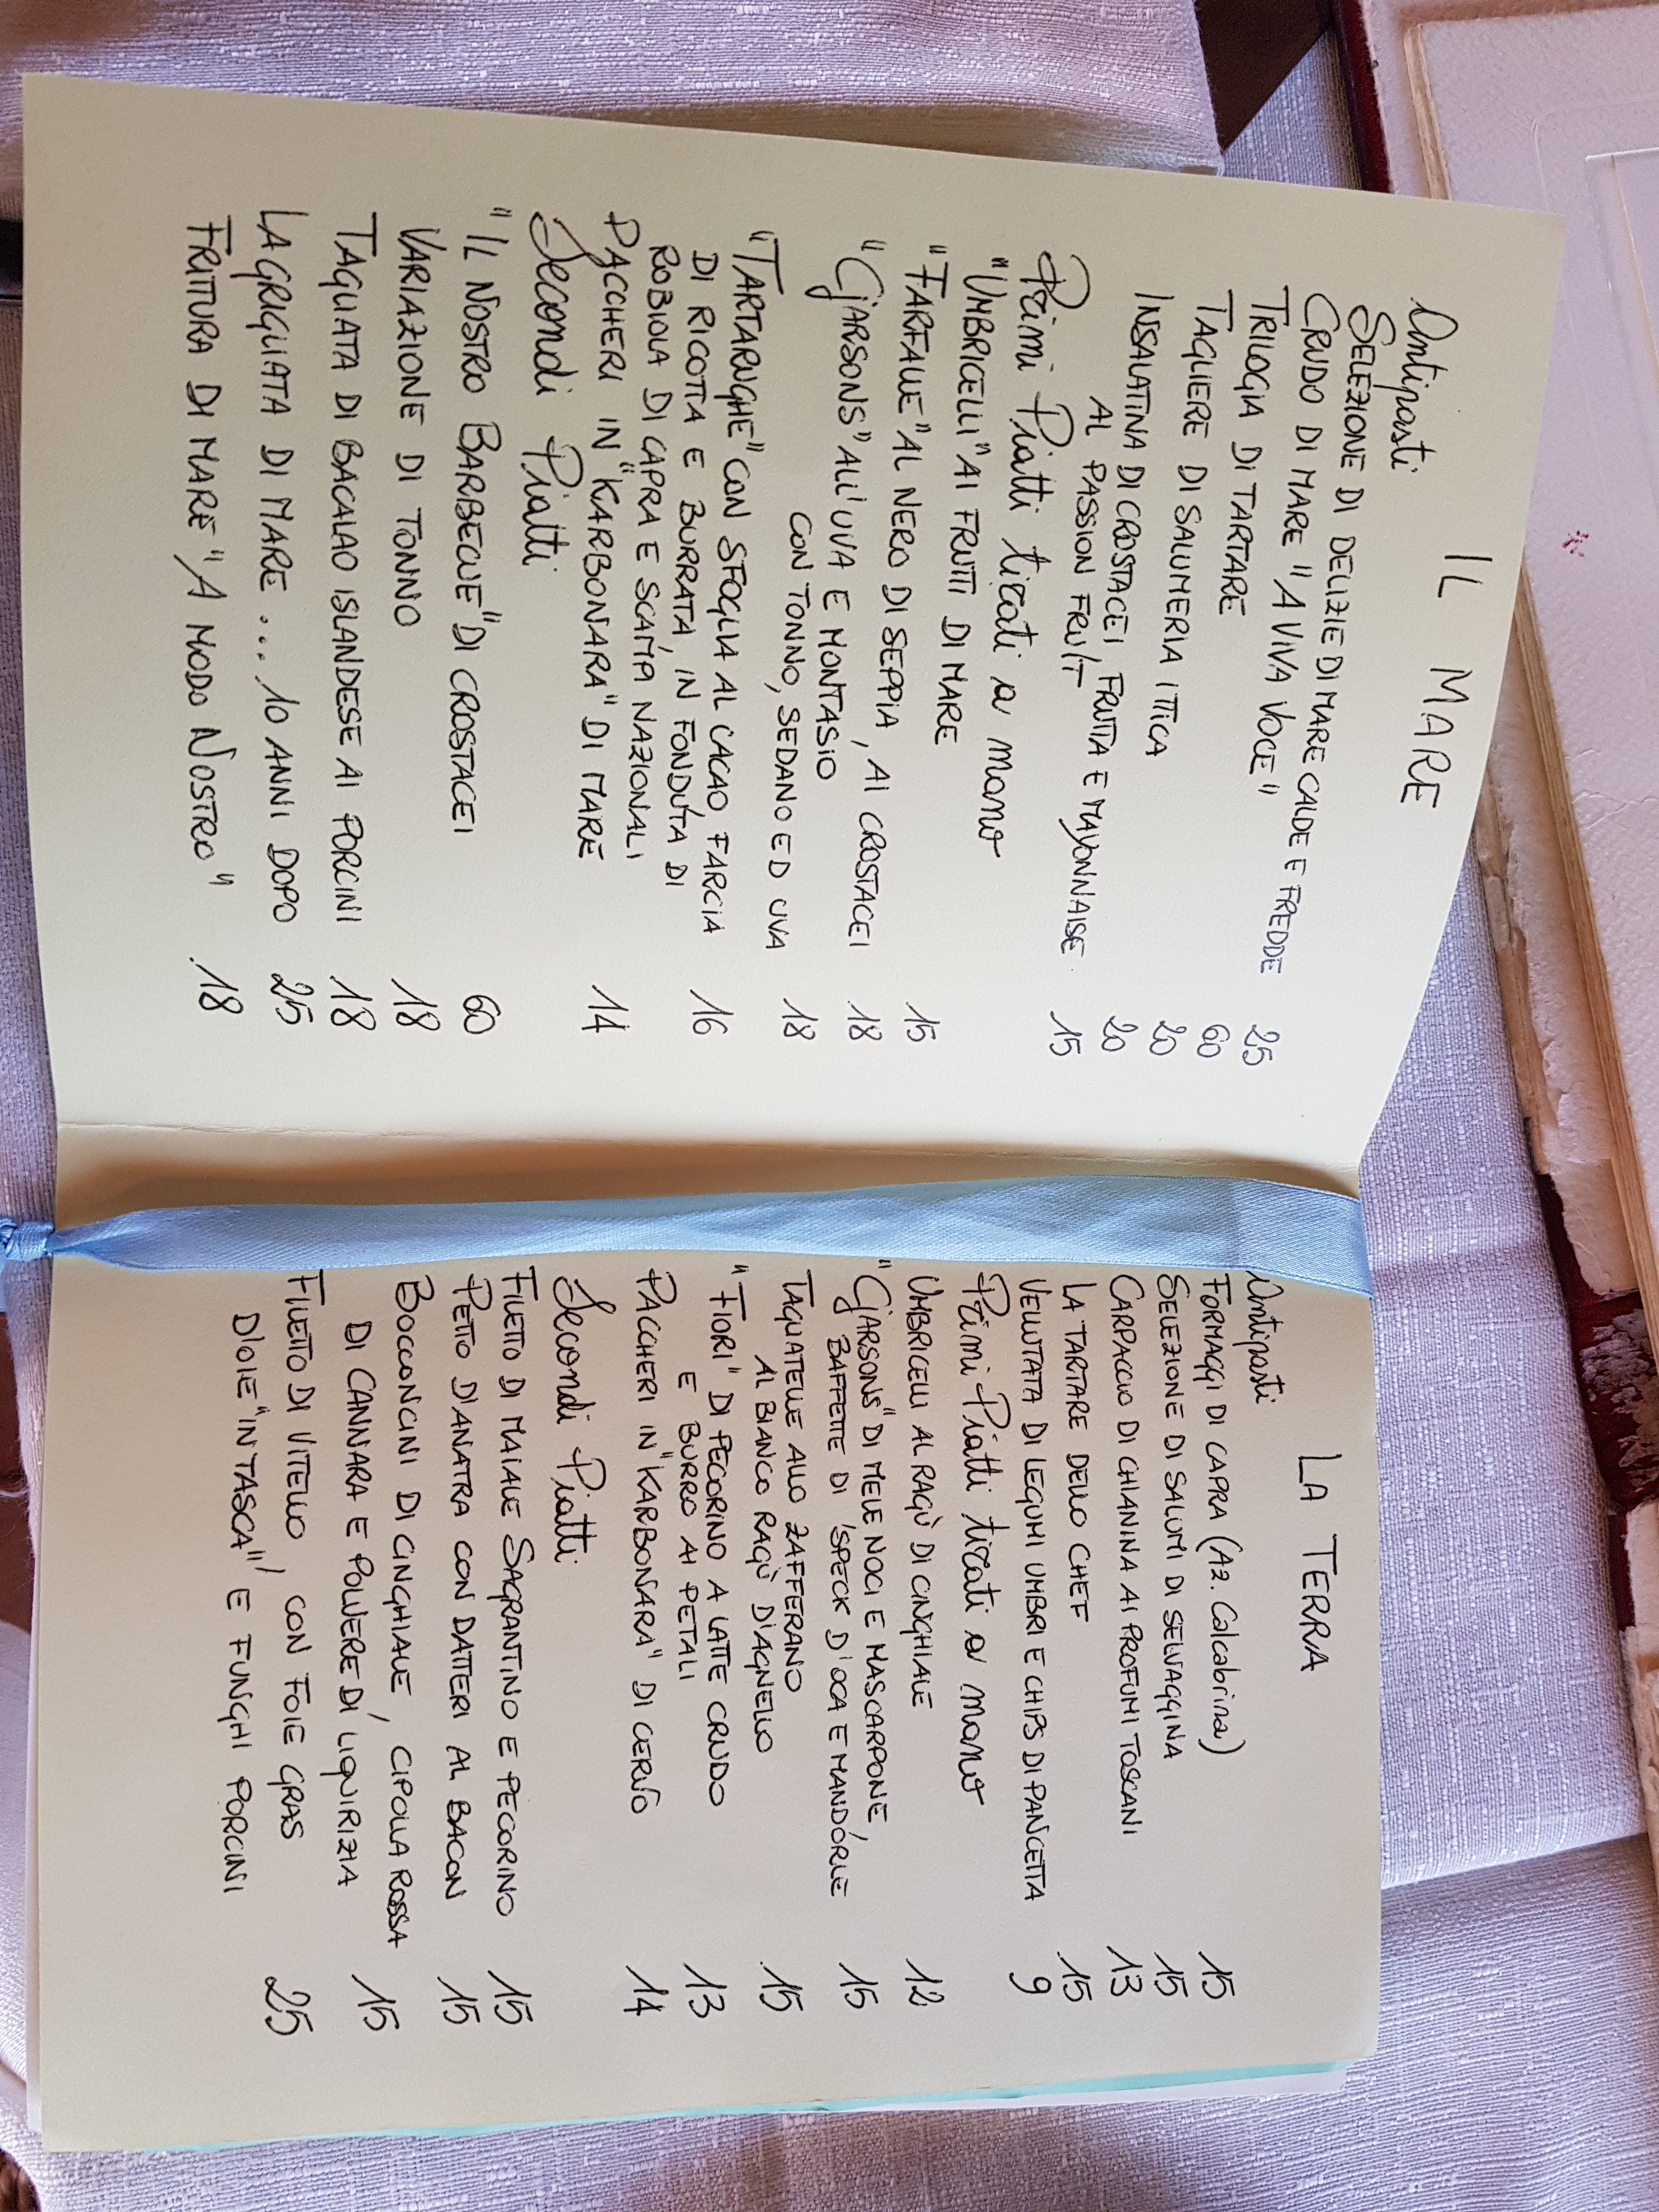 IL MARE
Antipasti
SELEZIONE DI DELIZIE DI MARE CALDE E FREDDE 25
CRUDO DI MARE "A VIVA VOCE" 60
TRILOGIA DI TARTARE 20
TAGLIERE DI SALUMERIA ITTICA 20
INSALATINA DI CROSTACEI, FRUTTA E MAYONNAISE 15
AL PASSION FRUIT
Primi Piatti tirati a mano
"UMBRICELLI" AI FRUTTI DI MARE 15
"FARFALLE" AL NERO DI SEPPIA, AI CROSTACEI 18
"GJARSONS" ALL'UVA E MONTASIO
CON TONNO, SEDANO ED UVA 18
"TARTARUGHE" CON SFOGLIA AL CACAO, FARCIA
DI RICOTTA E BURRATA, IN FONDUTA DI 16
ROBIOLA DI CAPRA E SCAMPI NAZIONALI
PACCHERI IN "KARBONARA" DI MARE 14
Secondi Piatti
"IL NOSTRO BARBECUE" DI CROSTACEI 60
VARIAZIONE DI TONNO 18
TAGLIATA DI BACALAO ISLANDESE AI PORCINI 18
LA GRIGLIATA DI MARE ... 10 ANNI DOPO 25
FRITTURA DI MARE "A MODO NOSTRO" 18
LA TERRA
Antipasti
FORMAGGI DI CAPRA (Az. Calcabrina) 15
SELEZIONE DI SALUMI DI SELVAGGINA 15
CARPACCIO DI CHIANINA AI PROFUMI TOSCANI 13
LA TARTARE DELLO CHEF 15
VELLUTATA DI LEGUMI UMBRI E CHIPS DI PANCETTA 9
Primi Piatti tirati a mano
UMBRICELLI AL RAGÙ DI CINGHIALE 12
"GJARSONS" DI MELE NOCI E MASCARPONE,
BAFFETTE DI SPECK D'OCA E MANDORLE 15
TAGLIATELLE ALLO ZAFFERANO
AL BIANCO RAGÙ D'AGNELLO 15
"FIORI" DI PECORINO A LATTE CRUDO
E BURRO AI PETALI 13
PACCHERI IN "KARBONARA" DI CERVO 14
Secondi Piatti
FILETTO DI MAIALE SAGRANTINO E PECORINO 15
PETTO D'ANATRA CON DATTERI AL BACON 15
BOCCONCINI DI CINGHIALE, CIPOLLA ROSSA
DI CANNARA E POLVERE DI LIQUIRIZIA 15
FILETTO DI VITELLO, CON FOIE GRAS
D'OIE "IN TASCA" E FUNGHI PORCINI 25